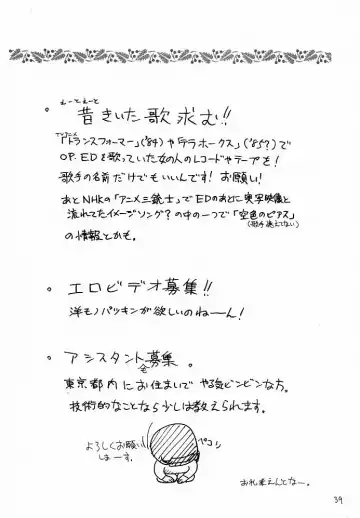 えーとえーと
昔きいた歌求む!!
TVアニメ
「トランスフォーマー」('84)や「テラホークス」('85?)で
OP.EDを歌っていた女の人のレコードやテープを!
歌手の名前だけでもいいんです! お願い!
あとNHKの「アニメ三銃士」でEDのあとに実写映像と
流れてたイメージソング?の中の一つで「空色のピアス」
(歌手憶えてない)
の情報とかも。
エロビデオ募集!!
洋モノバツキンが欲しいのねーん!
アシスタント募集。
東京都内にお住まいで やる気ビンビンな方。
技術的なことなら少しは教えられます。
よろしくお願い
しまーす。
ペコッ
39